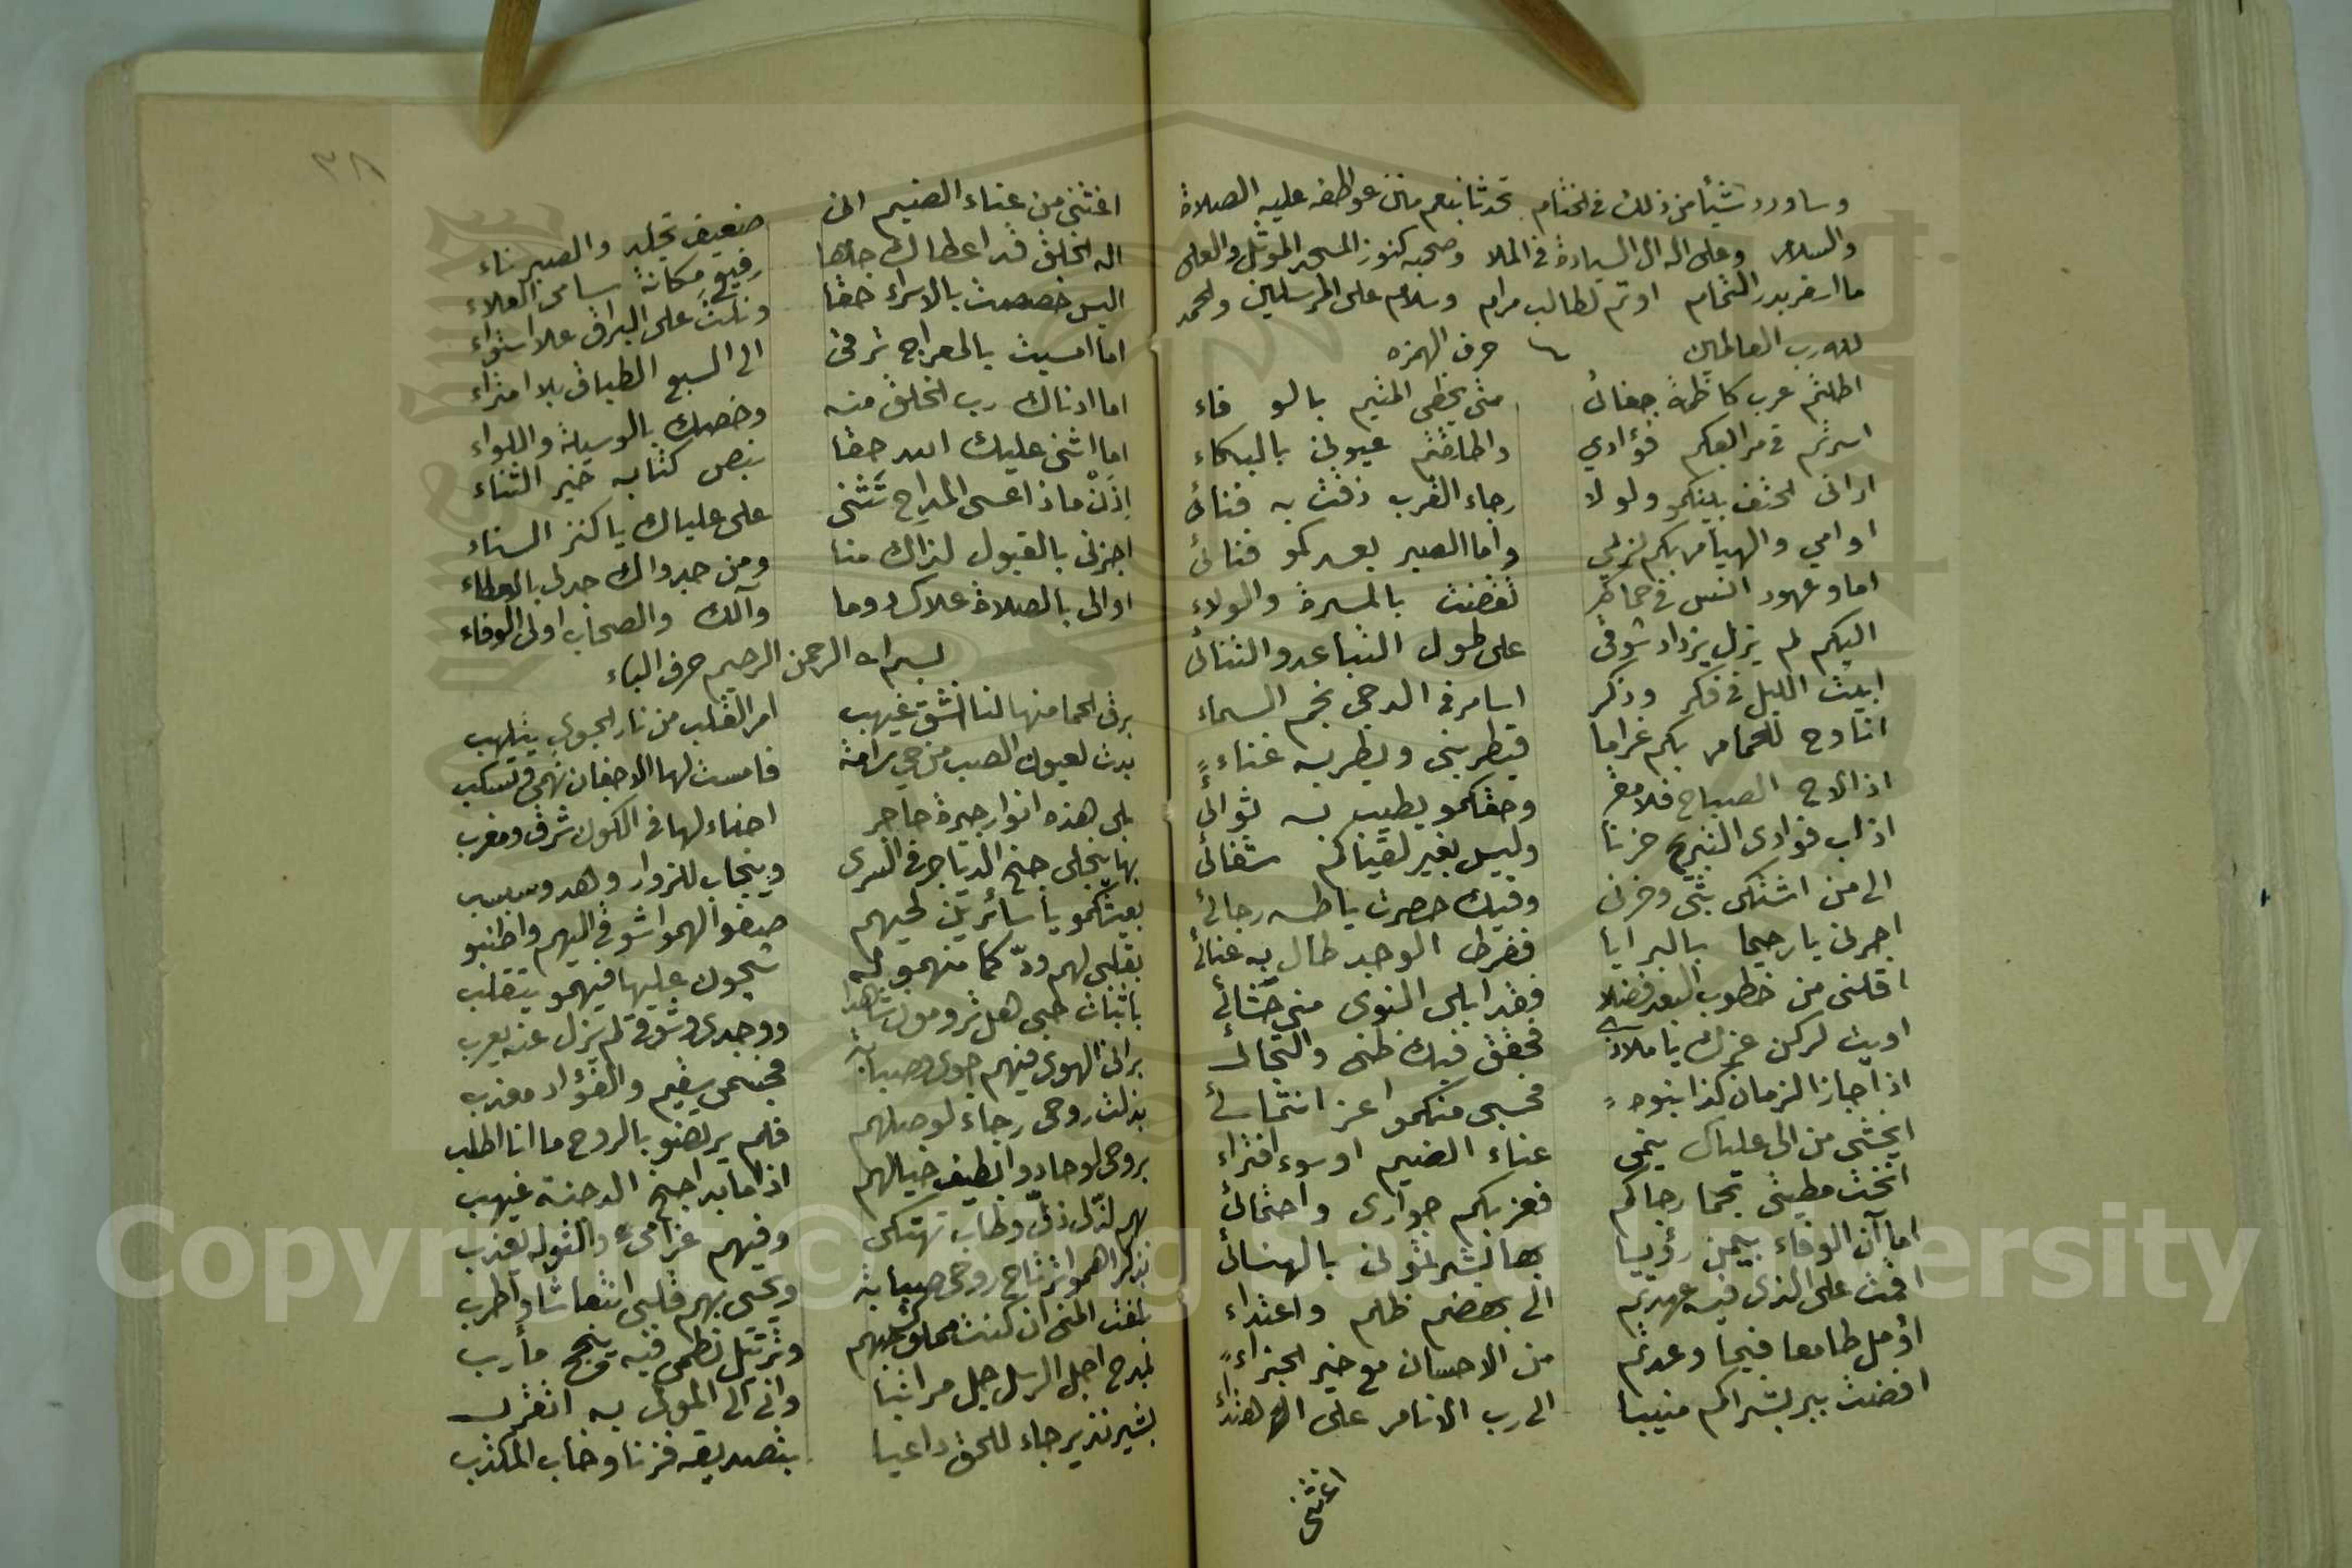 وساورد شيأ من ذلك في الختام تحدثا بنعم مانن عواطفه عليه الصلاة
والسلام وعلى اله ال السيادة في الملا وصحبه كنوز المجد الموثل والعلى
ما اسفر بدر التمام او تم لطالب مرام وسلام على المرسلين والحمد
لله رب العالمين حرف الهمزه
اطلتم عرب كاظمة جفائى متى يحظى المتيم بالوفاء
اسرتم في مرابعكم فؤادي واطلقتم عيونى بالبكاء
ارانى لحتف بينكمو ولولا رجاء القرب ذقت به فنائى
اوامي والهيام بكم لزيمي واما الصبر بعدكمو فنائى
اما وعهود انس في حماكم تقضت بالمسرة والولاء
اليكم لم يزل يزداد شوقى على طول التباعد والتنائى
ابيت الليل في فكر وذكر اسامر في الدجى نجم السماء
اناوح للحمام بكم غراما فيطربنى ويطربه غناء
اذا لاح الصباح فلا مفر وحقكمو يطيب به ثوائى
اذاب فؤادى التبريح حزنا وليس بغير لقياكم شفائى
الى من اشتكى بثى وحزنى وفيك حصرت يا طه رجائى
اجرنى يا رحيما بالبرايا ففرط الوجد طال به عنائى
اقلنى من خطوب البعد فضلا وقد ابلى النوى منى حشائى
اويت لركن عزك يا ملاذى فحقق فيك ظنى والتجائى
اذا جار الزمان كذا بنوه فحسبى منكمو عز انتمائى
ايخشى من الى علياك ينمى عناء الضيم او سوء افتراء
انخت مطيتى بحما رجاكم فعز بكم جوارى واحتمائى
اما آن الوفاء بيمن رؤيا بها بشر لمثولى بالهنائى
اقمت على الذى فيه عهدتم الى بعضهم ظلم واعتداء
اؤمل طامعا فيما وعدتم من الاحسان مع خير الجزاء
افضت ببر بشراكم منيبا الى رب الانام على اهتداء
اغثنى
٣٨
اغثنى من عناء الضيم انى ضعيف تجلد والصبر ناء
اله الخلق قد اعطاك جاها رفيع مكانة سامى العلاء
اليس خصصت بالاسراء حقا ونلت على البراق علا استواء
اما امسيت بالمعراج ترقى الى السبع الطباق بلا امتراء
اما ادناك رب الخلق منه وخصك بالوسيلة واللواء
اما اثنى عليك الله حقا بنص كتابه خير الثناء
إذن ماذا عسى المداح تثنى على علياك يا كنز السناء
اجزنى بالقبول لذاك منا ومن جدواك جدلى بالعطاء
اوالى بالصلاة علاك دوما وآلك والصحاب اولى الوفاء
بسم الله الرحمن الرحيم حرف الباء
برق الحما منها لنا انشق غيهب ام القلب من نار الجوى يتلهب
بدت لعيون الصب من حي رامة فامست لها الاجفان تهمى وتسكب
بلى هذه انوار جيرة حاجر اضاء لها في الكون شرق ومغرب
بها ينجلى جنح الدياجر في السرى وينجاب للزوار وهد وسبسب
بعيشكمو يا سائرين لحيهم صفوا لهمو اشواقى اليهم واطنبو
بقلبى لهم ودّ كما منهمو له شجون عليها فيهمو يتقلب
باثبات حبى هل ترومون شاهدا ووجدى وشوقى لم يزل عنه يعرب
برانى الهوى فيهم جوى وصبابة فجسمى سقيم والفؤاد معذب
بذلت روحى رجاء لوصلهم فلم يرتضو بالروح ما انا اطلب
بروحى لو جادوا بطيف خيالهم اذا ما بدا جنح الدجنة غيهب
بهم لذّلى ذلى وطاب تهتكى وفيهم غرامى والتوله يعذب
بذكراهمو ترتاح روحى صبابة ويحيى بهم قلبى انتعاشا واطرب
بلغت المنى ان كنت مملوك حبهم وترتيل نظمى فيه ينجح مأرب
بمدح اجل الرسل جل مراتبا وانى الى المولى به اتقرب
بشير نذير جاء للحق داعيا بتصديقه فزنا وخاب المكذب
Copyright © King Saud University